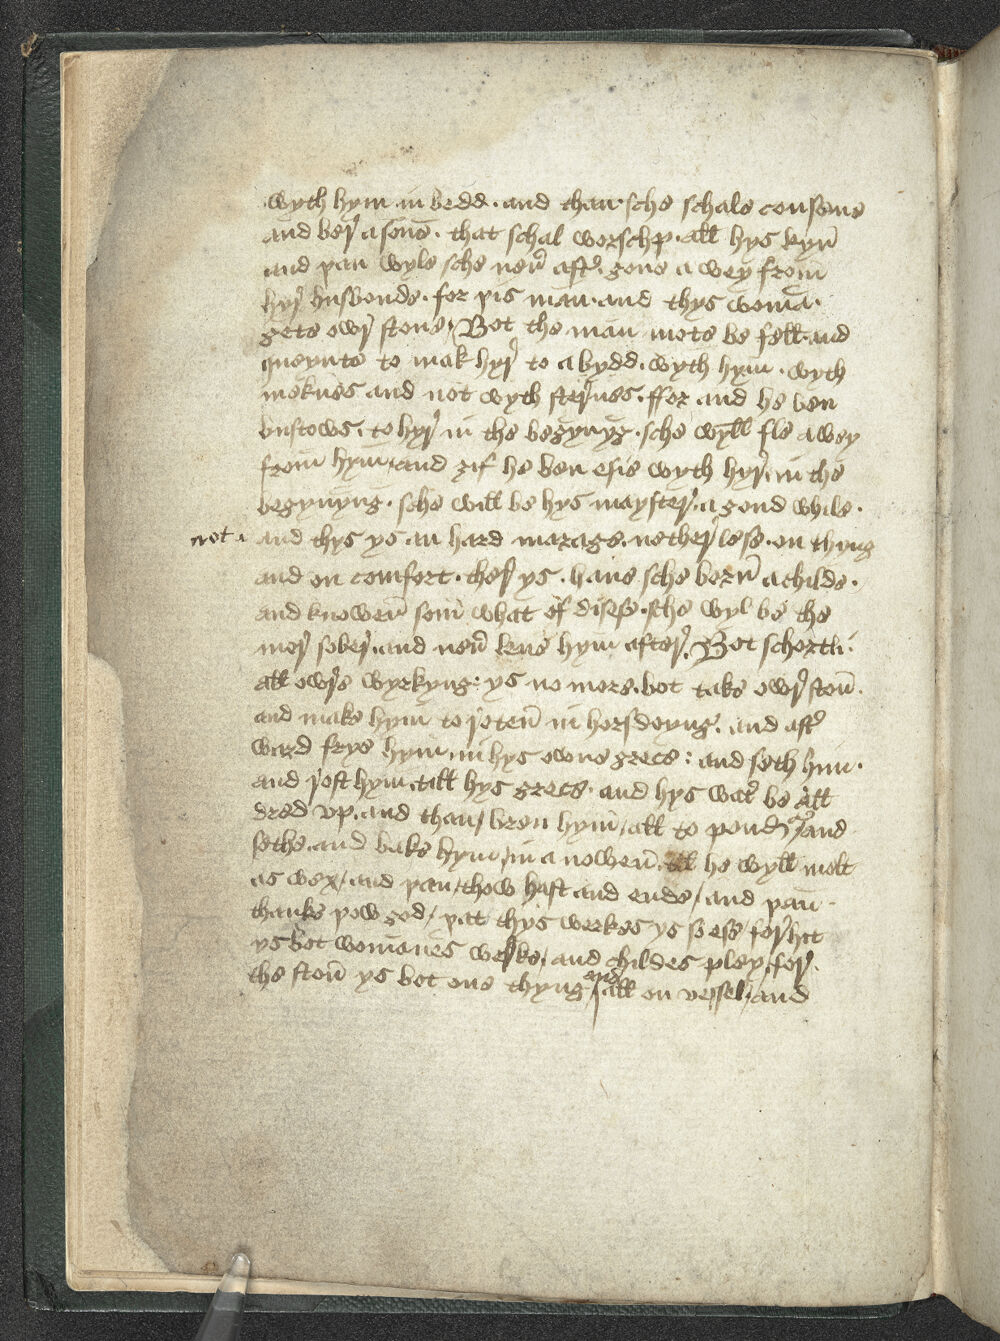 wyth hym in bedd. and than sche schale conseue
and ber a sone. that schal worschp. all hys kyn
and þan wyle sche neuer after. gone a wey from
hyr husbonde. for þis man. and thys woman.
gete owr stone / Bot the man mote be fell. and
queynte to mak hyr to abydd. wyth hym. wyth
meknes and not wyth sternes. ffor and he ben
to hyr in the begynyg. sche wyll fle awey
from hym. and ȝif he ben esie wyth hyr. in the
begynyng. sche will be hys mayster. a goud while.
not. and thys ys an hard marage. netherlese. on thyng
and on comfort. ther ys. haue sche born a childe.
and knowen som what of disese. sche wyl be the
mor sober. and neuer leue hym after. Bot schortli.
all owre wyrkyng. ys no more. bot take owr ston.
and make hym to roten in horsdoung. and after
ward frye hym. in hys owne grece: and seth him.
and rost hym. till hys grece. and hys water be all
dred vp. and than / bren hym / all to pouder / and
sethe. and bake hym / in a nowen. till he wyll melt
as wex / and þan / thow hast and ende / and þan
thanke þow god / þat thys werkes ys so ese / for hit
ys bot womanes werke / and childes pley. for.
the ston ys bot one thyng and / all on vessel / and